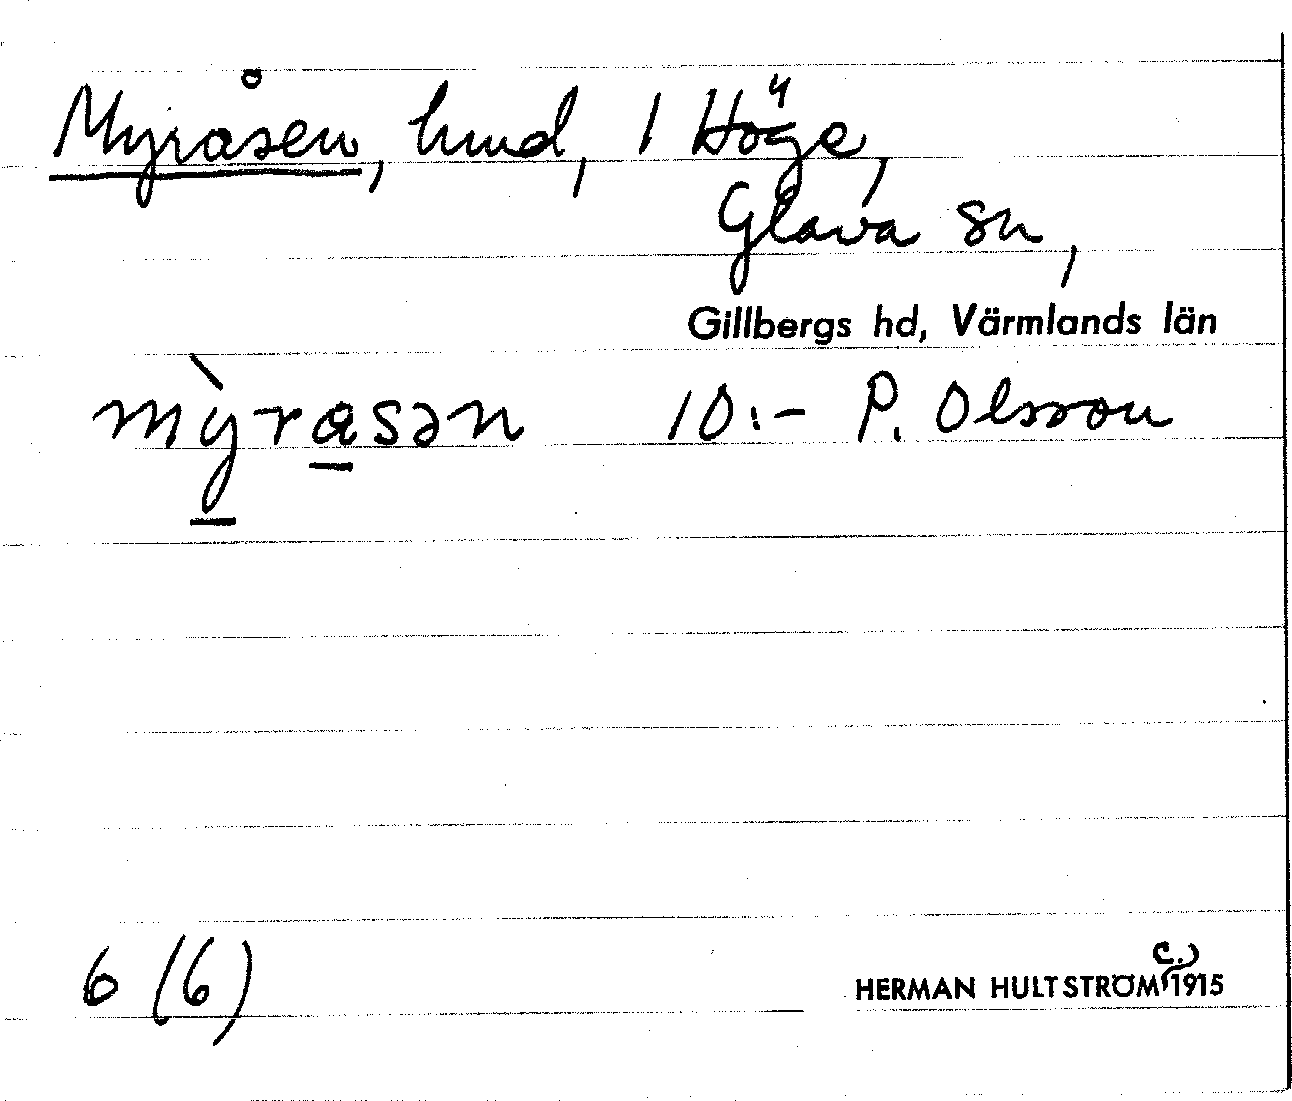 Myråsen, hmd, 1 Höge,
Glava sn,
Gillbergs hd, Värmlands län
mỳrasən 10:- P. Olsson
6 (6)
c.)
HERMAN HULTSTRÖM 1915